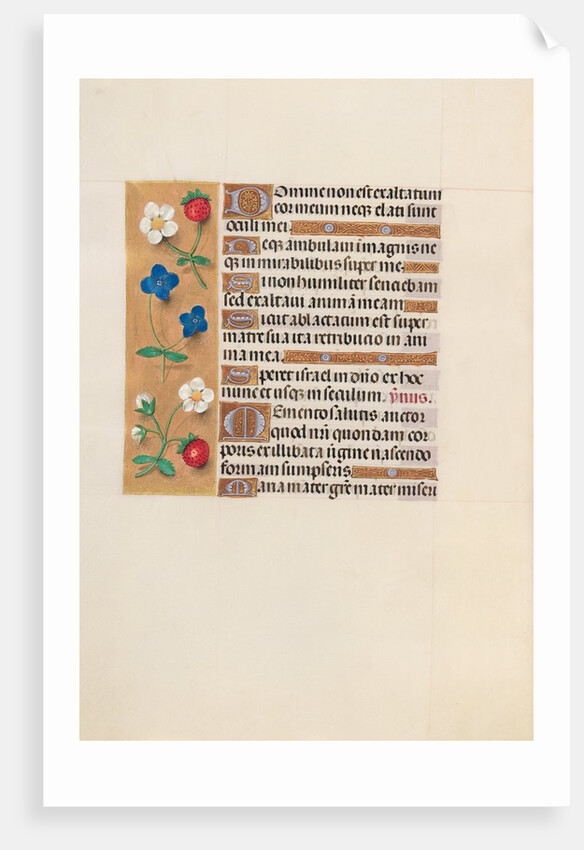 Domine non est exaltatum
cor meum neq3 elati sunt
oculi mei.
Neq3 ambulaui ī magnis ne
q3 in mirabilibus super me.
Si non humiliter senciebam
sed exaltaui animā meam
Sicut ablactatum est super
matre sua ita retribucio in ani
ma mea.
Speret israel in dn̄o ex hoc
nunc et usq3 in seculum. ẏnus.
Memento salutis auctor
quod nr̄i quondam cor
poris ex illibata ūgine nascendo
formam sumpseris.
Maria māter gr̄e mater miseri